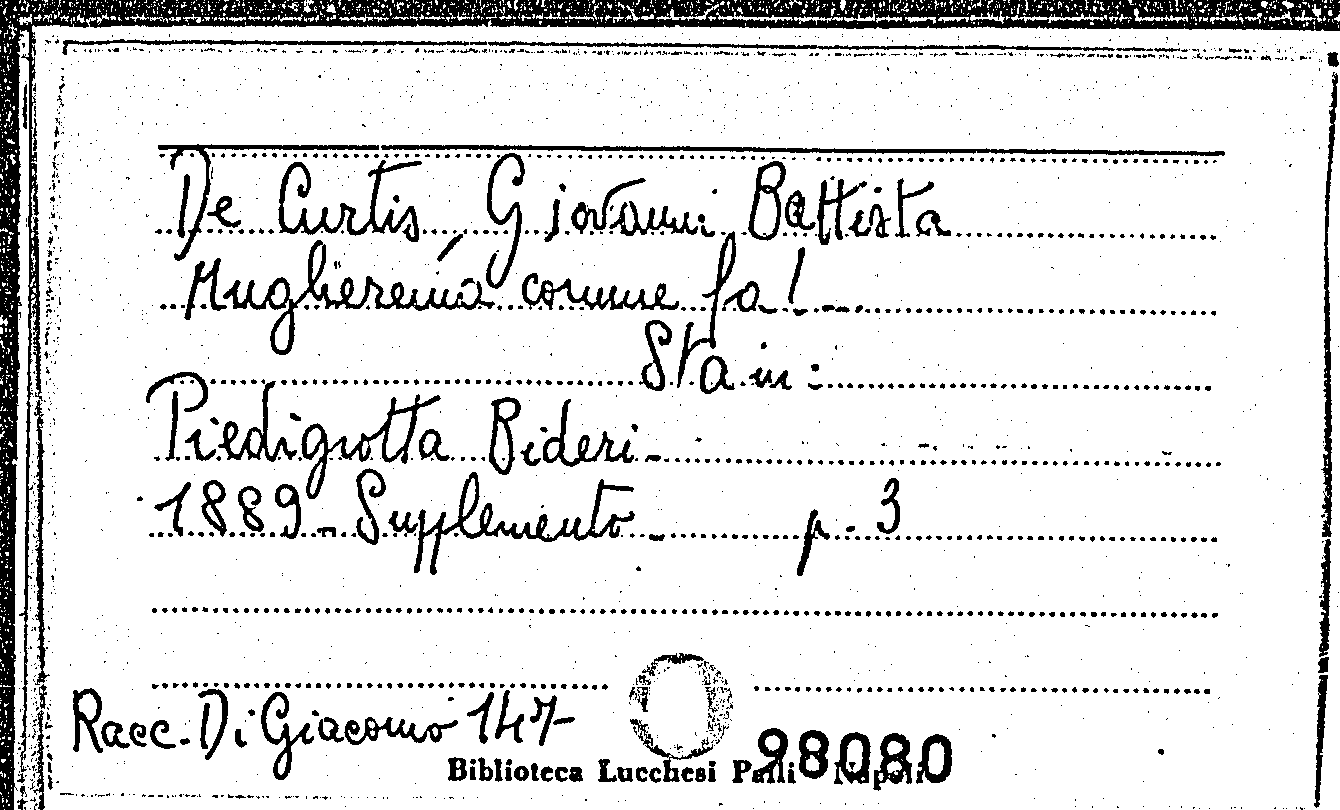 De Curtis, Giovanni Battista
Muglieremia comme fa! -
Sta in:
Piedigrotta Bideri -
1889 - Supplemento - p. 3
Racc. Di Giacomo 147
98080
Biblioteca Lucchesi Palli Napoli